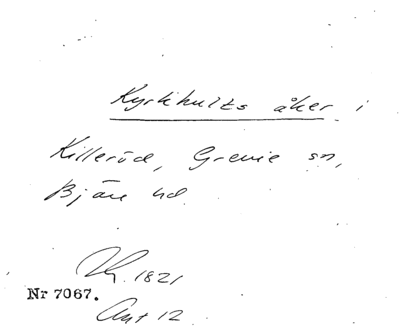 Kyrkhults åker i
Killeröd, Grevie sn,
Bjäre hd
1821
Nr 7067.
Akt 12